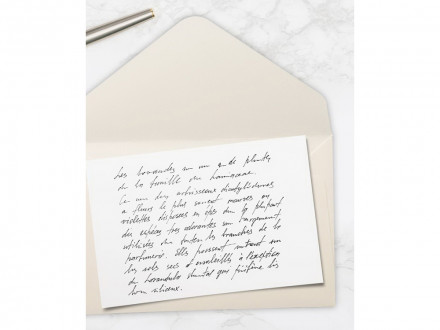 Les lavandes sont un genre de plantes
de la famille des Lamiaceae.
Ce sont des arbrisseaux dicotylédones
à fleurs le plus souvent mauves ou
violettes disposées en épis dont la plupart
des espèces très odorantes sont largement
utilisées dans toutes les branches de la
parfumerie. Elles poussent surtout sur
les sols secs et ensoleillés à l'exception
de Lavandula qui préfère les
siliceux.